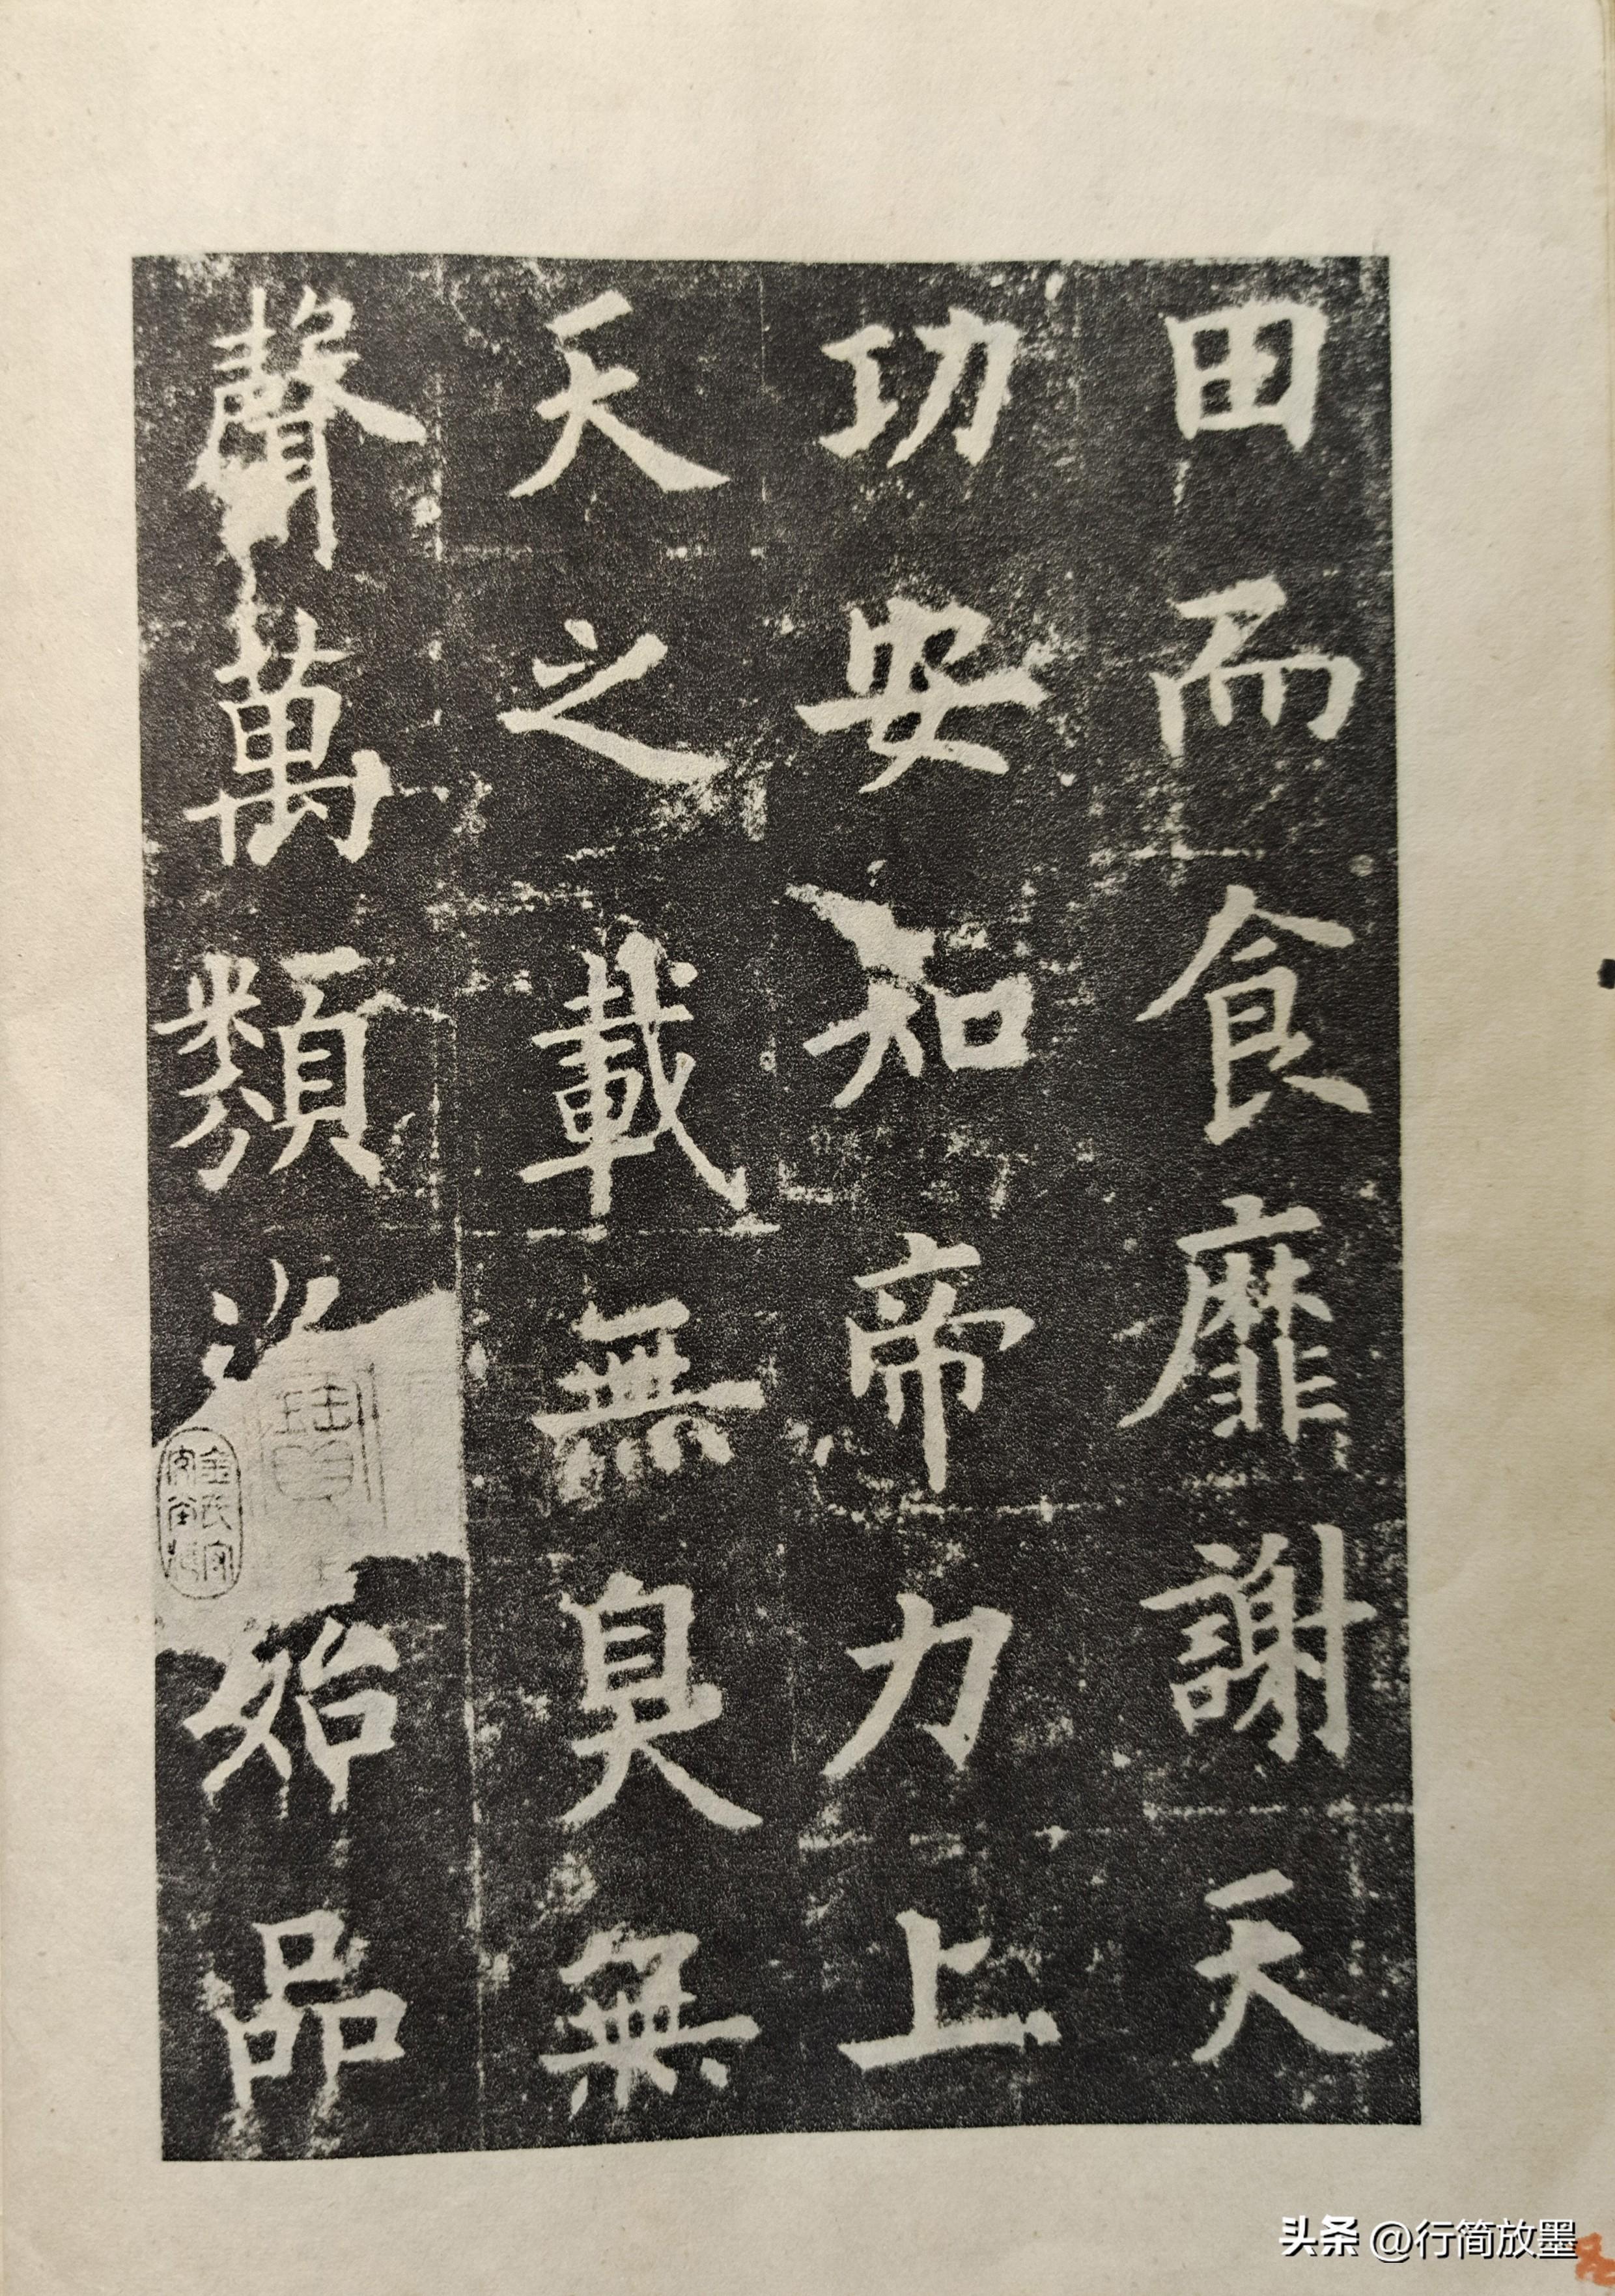 田而食靡謝天
功安知帝力上
天之載無臭無
聲萬類資始品
頭条 @行简放墨